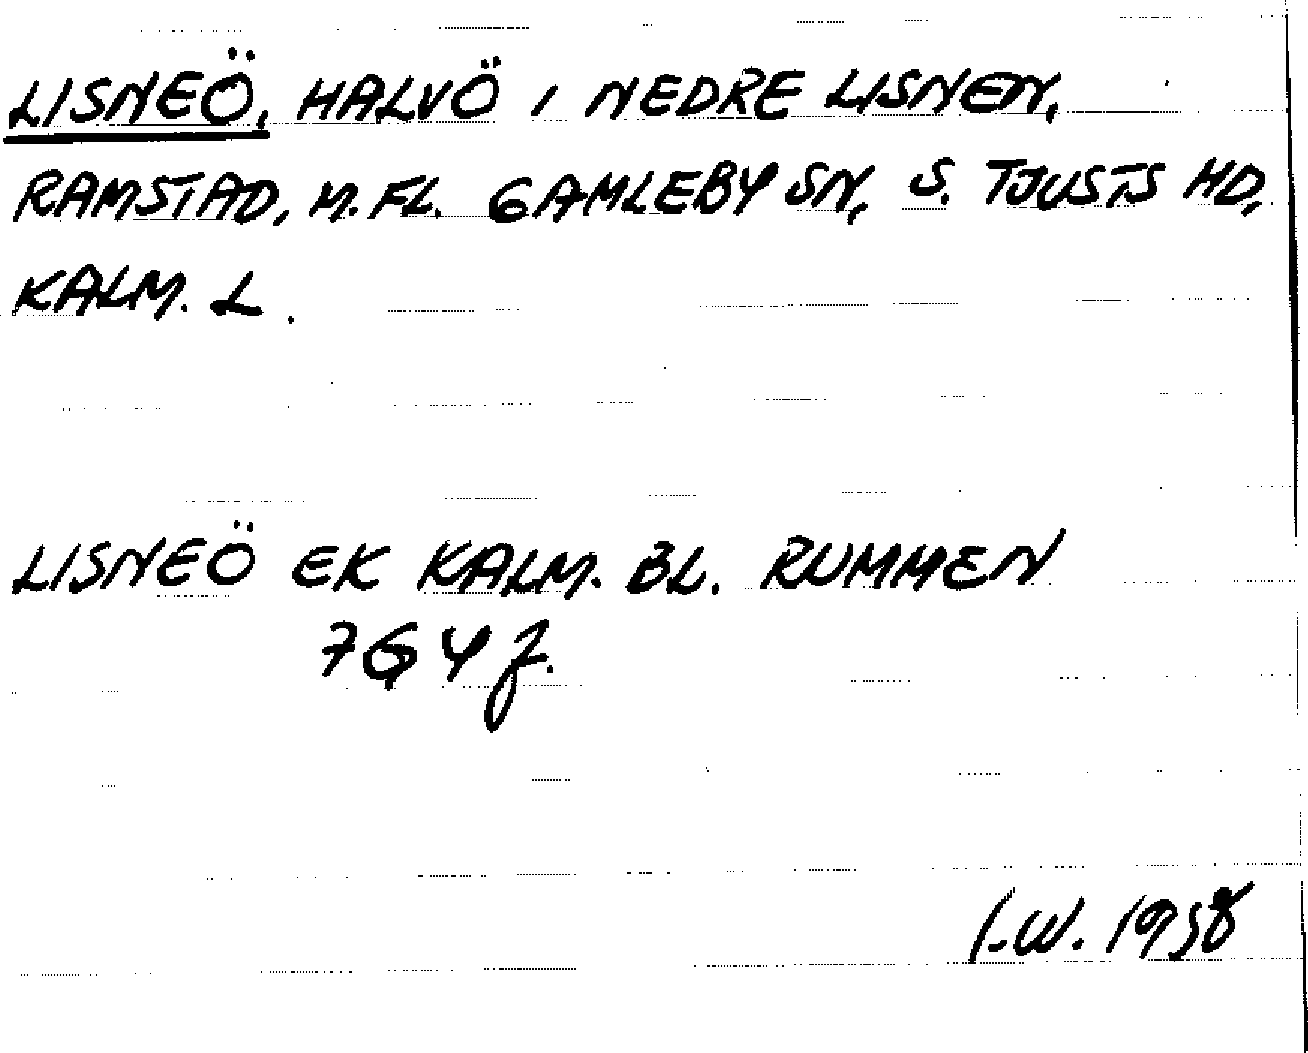 LISNEÖ, HALVÖ I NEDRE LISNEN,
RAMSTAD, M.FL. GAMLEBY SN, S. TJUSTS HD,
KALM. L.
LISNEÖ EK KALM. BL. RUMMEN
7G4f.
I.W. 1958